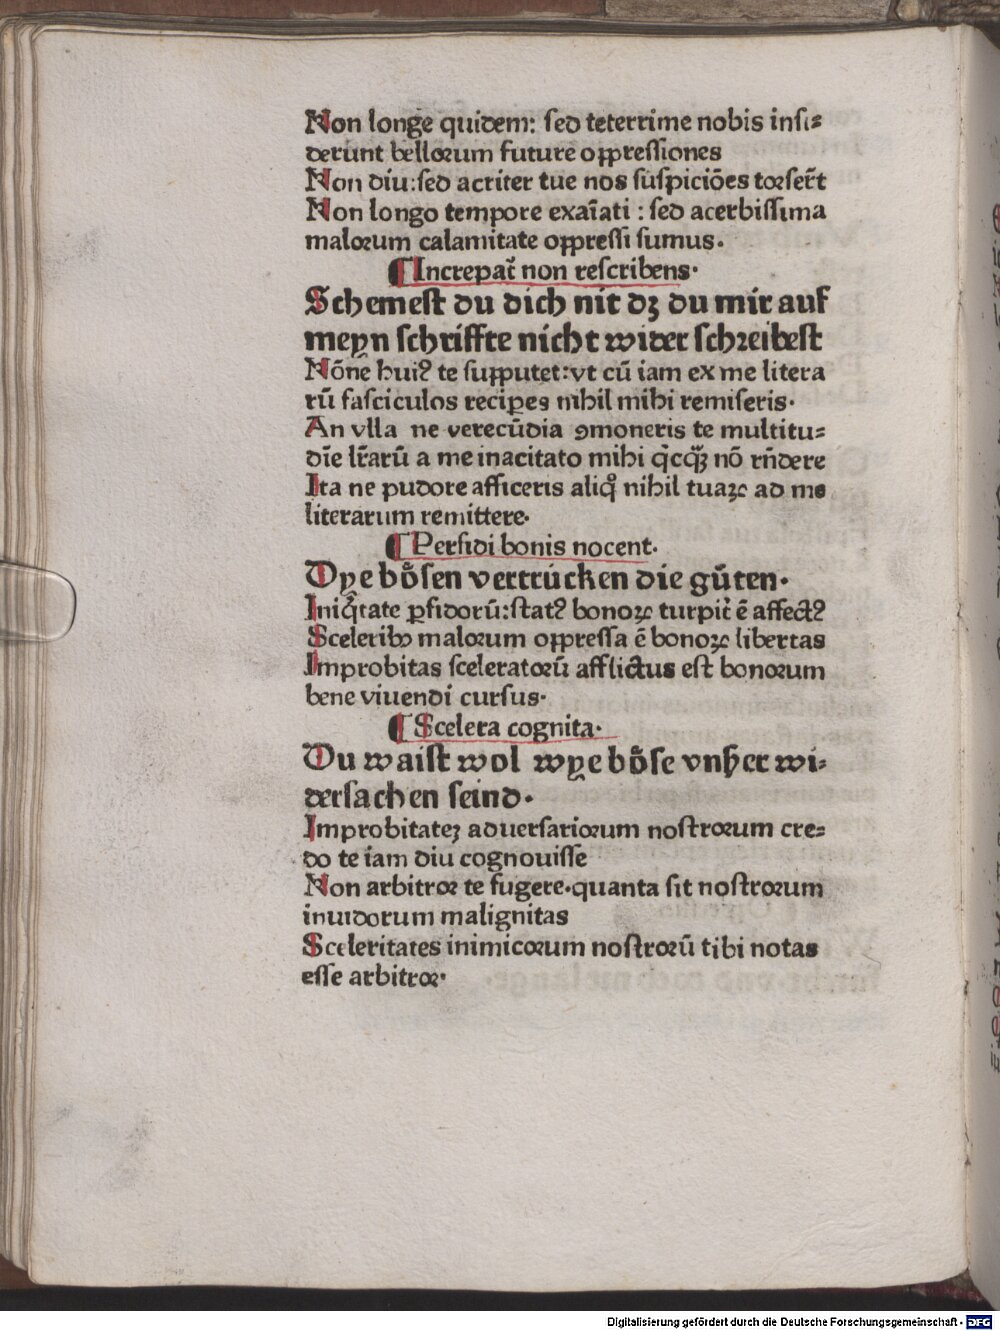 Non longe quidem: sed teterrime nobis insi⸗
derunt bellorum future oppressiones
Non diu:sed acriter tue nos suspiciōes torser̄t
Non longo tempore exaīati : sed acerbissima
malorum calamitate oppressi sumus.
¶Increpat̄ non rescribens·
Schemest du dich nit dꝫ du mir auf
meyn schriffte nicht wider schreibest
Nōne huiꝰ te supputet:vt cū iam ex me litera
rū fasciculos recipes nihil mihi remiseris·
An vlla ne verecūdia ꝯmoneris te multitu⸗
dīe lr̄arū a me inacitato mihi qͥcqͣꝫ nō rn̄dere
Ita ne pudore afficeris aliqͦ nihil tuaꝝ ad me
literarum remittere·
¶Perfidi bonis nocent·
Dye boͤsen vertrucken die guͤten·
Iniqͥtate ꝑfidorū:statꝰ bonoꝝ turpit̄ ē affectꝰ
Sceleribꝰ malorum oppressa ē bonoꝝ libertas
Improbitas sceleratorū afflictus est bonorum
bene viuendi cursus·
¶Scelera cognita·
Du waist wol wye boͤse vnßer wi⸗
dersachen seind·
Improbitateꝫ aduersariorum nostrorum cre⸗
do te iam diu cognouisse
Non arbitror te fugere·quanta sit nostrorum
inuidorum malignitas
Sceleritates inimicorum nostrorū tibi notas
esse arbitror·
Digitalisierung gefördert durch die Deutsche Forschungsgemeinschaft - DFG